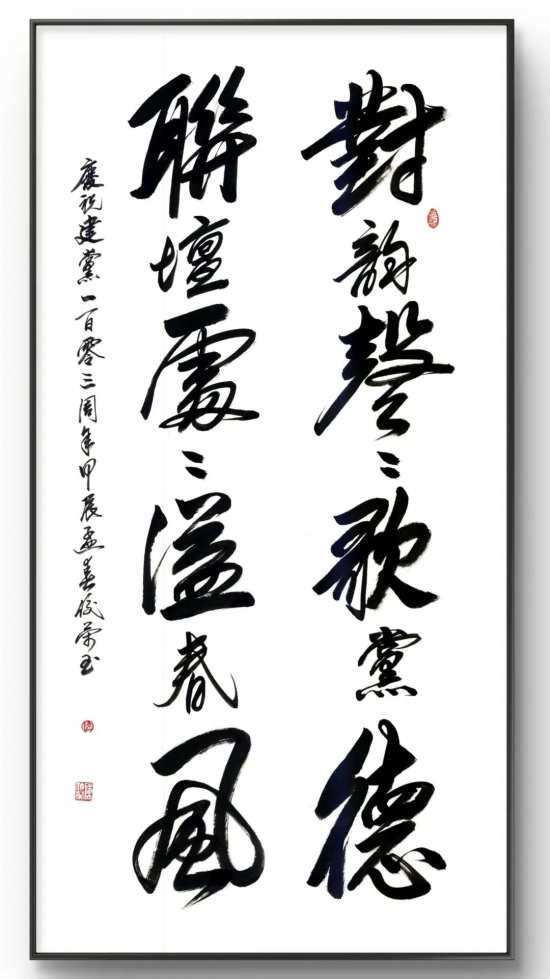 對韵聲〻歌黨德
聯壇處〻溢春風
慶祝建黨一百零三周年甲辰孟春俊荣书